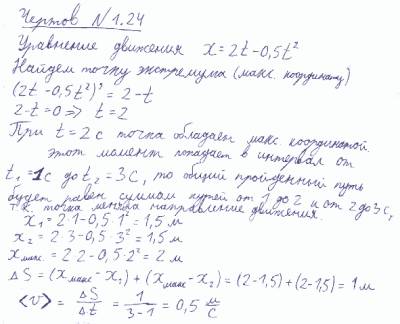 Чертов №1.24
Уравнение движения x = 2t - 0,5t²
Найдем точку экстремума (макс. координату)
(2t - 0,5t²)' = 2 - t
2 - t = 0 => t = 2
При t = 2c точка обладает макс. координатой.
этот момент попадает в интервал от
t₁ = 1c до t₂ = 3c, то общий пройденный путь
будет равен суммам путей от 1 до 2 и от 2 до 3с,
т.к. точка меняла направление движения.
x₁ = 2·1 - 0,5·1² = 1,5 м
x₂ = 2·3 - 0,5·3² = 1,5 м
xмакс = 2·2 - 0,5·2² = 2 м
ΔS = (xмакс - x₁) + (xмакс - x₂) = (2-1,5) + (2-1,5) = 1 м
<v> = ΔS/Δt = 1/(3-1) = 0,5 м/с